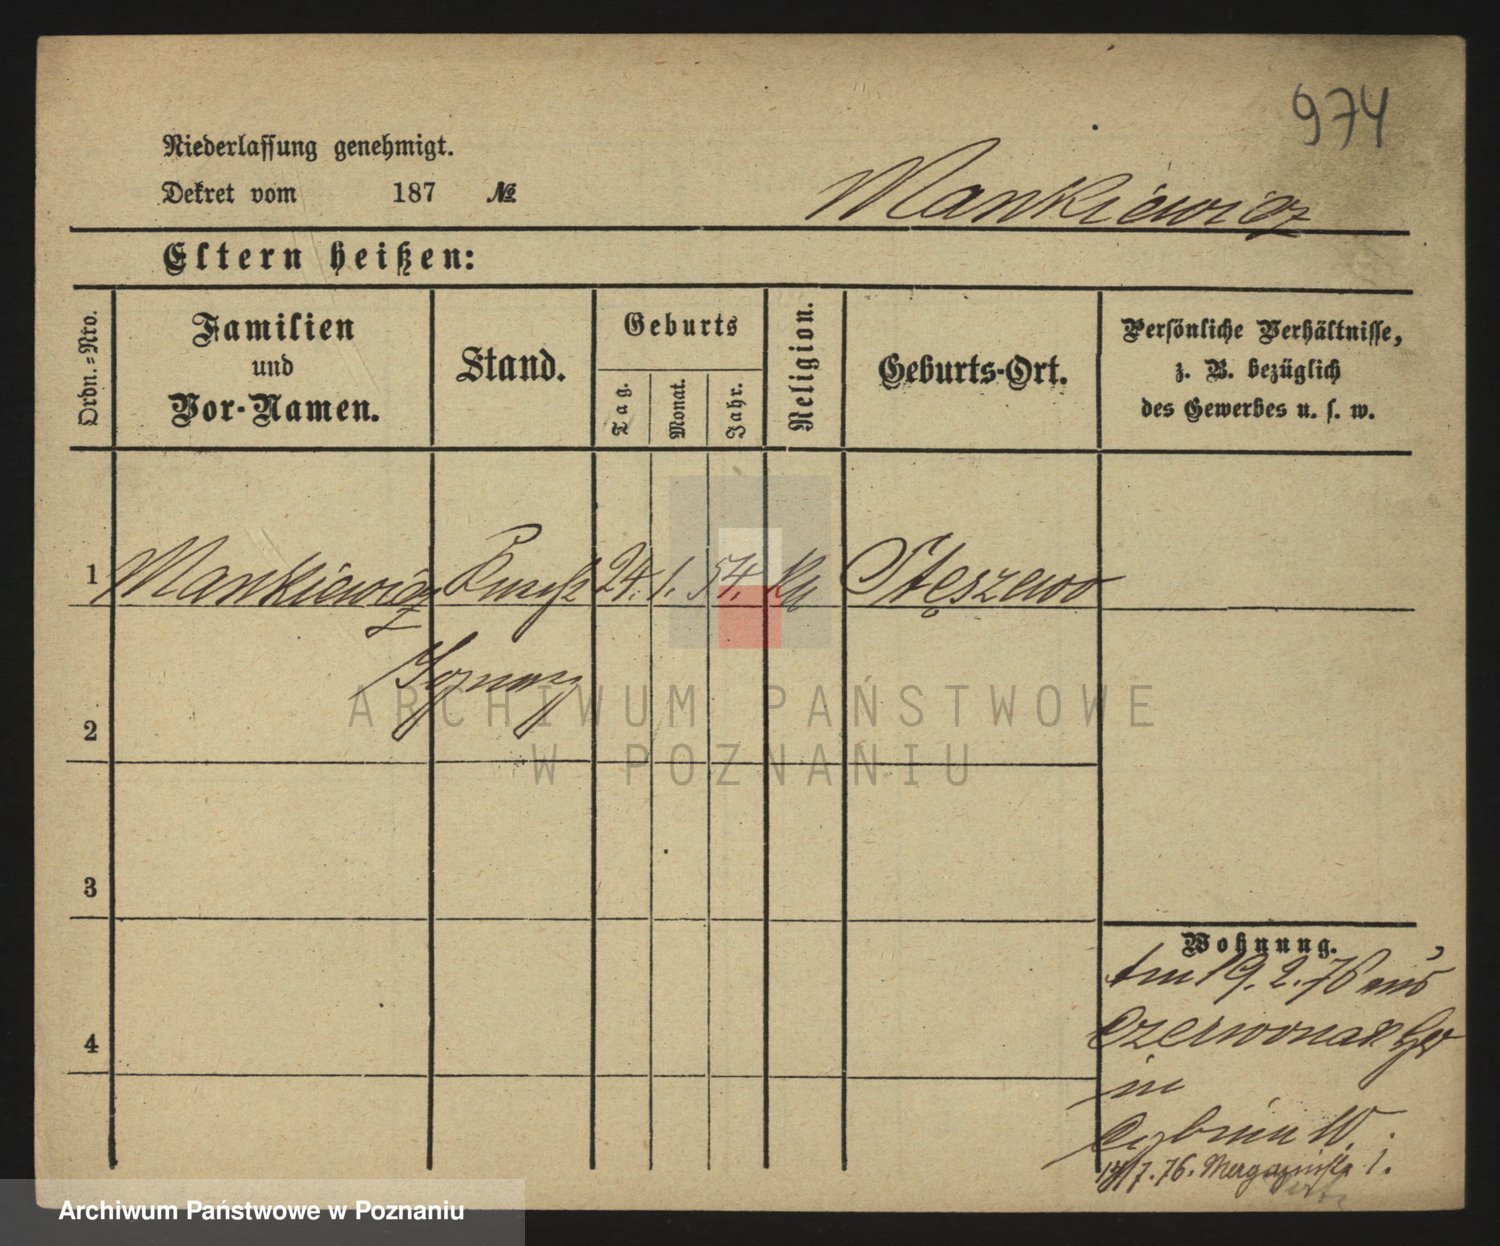 974
Niederlassung genehmigt.
Dekret vom 187 №
Mankiewicz
Eltern heißen:
Ordn.-Nro.
Familien
und
Vor-Namen.
Stand.
Geburts
Tag.
Monat.
Jahr.
Religion.
Geburts-Ort.
Persönliche Verhältnisse,
z. B. bezüglich
des Gewerbes u. s. w.
1 Mankiewicz 24. 1. 54. ka Stęszewo
Ignacy
2
3
Wohnung.
Am 19.2.76 aus
Czerwonak
4
in
W.
7.76. 1.
ARCHIWUM PAŃSTWOWE
W POZNANIU
Archiwum Państwowe w Poznaniu